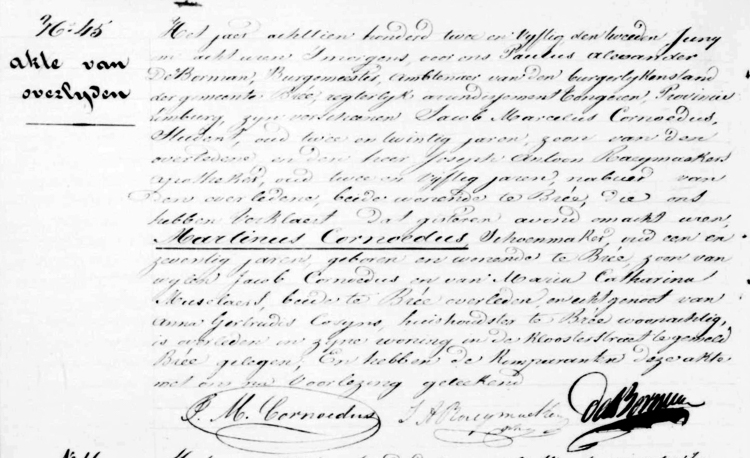 No 45
akte van
overlyden
Het jaer achttien honderd twee en vyftig den tweeden Juny
ne acht uren s'morgens, voor ons Paulus Alexander
De Borman, Burgemeester, Ambtenaer van den burgerlyken stand
der gemeente Brée, regterlyk arrondissement Tongeren, Provincie
Limburg, zyn verschenen Jacob Marcelus Cornoedus,
Student, oud twee en twintig jaren, zoon van den
overledene en den heer Joseph Antoon Raeymaekers
apotheker, oud twee en vyftig jaren, nabuer van
den overledene, beide wonende te Brée, die ons
hebben verklaert dat gisteren avond om acht uren,
Martinus Cornoedus, Schoenmaker, oud een en
zeventig jaren, geboren en wonende te Brée, zoon van
wylen Jacob Cornoedus en van Maria Catharina
Musclaers, beide te Brée overleden, en echtgenoot van
Anna Gertrudes Cosyns, huishoudster te Brée woonachtig,
is overleden in zyne woning in de Kloosterstraet te gemeld
Brée gelegen; En hebben de Komparanten deze akte
met ons na voorlezing geteekend
J. M. Cornoedus J A Raeymaekers de Borman